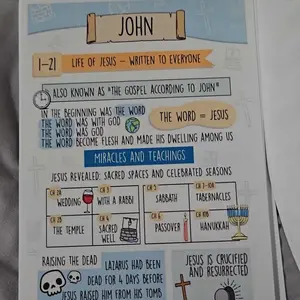 JOHN
1-21 LIFE OF JESUS – WRITTEN TO EVERYONE
ALSO KNOWN AS "THE GOSPEL ACCORDING TO JOHN"
IN THE BEGINNING WAS THE WORD
THE WORD WAS WITH GOD
THE WORD WAS GOD
THE WORD BECOME FLESH AND MADE HIS DWELLING AMONG US
THE WORD = JESUS
MIRACLES AND TEACHINGS
JESUS REVEALED: SACRED SPACES AND CELEBRATED SEASONS
CH 2A
WEDDING
CH 3
WITH A RABBI
CH 5
SABBATH
CH 7-10A
TABERNACLES
CH 2B
THE TEMPLE
SACRED
WELL
CH 6
PASSOVER
CH 10B
HANUKKAH
RAISING THE DEAD
LAZARUS HAD BEEN
DEAD FOR 4 DAYS BEFORE
JESUS RAISED HIM FROM HIS TOMB
JESUS IS CRUCIFIED
AND RESURRECTED